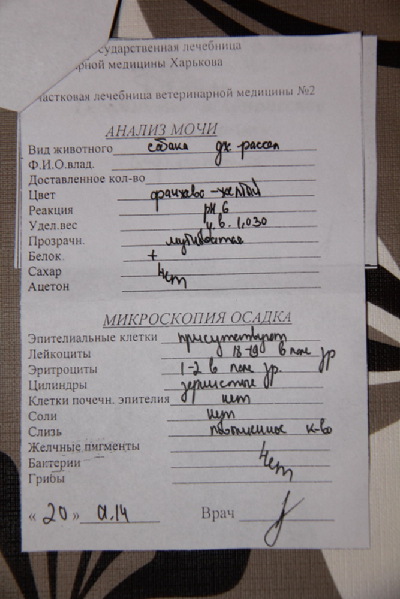 сударственная лечебница
рной медицины Харькова
астковая лечебница ветеринарной медицины №2
АНАЛИЗ МОЧИ
Вид животного собака дж. рассел
Ф.И.О.влад.
Доставленное кол-во
Цвет оранжево-желтый
Реакция рН 6
Удел.вес у.в. 1,030
Прозрачн. мутноватая
Белок. +
Сахар Нет
Ацетон
МИКРОСКОПИЯ ОСАДКА
Эпителиальные клетки присутствуют
Лейкоциты в поле зр
Эритроциты 1-2 в поле зр.
Цилиндры зернистые
Клетки почечн. эпителия нет
Соли нет
Слизь к-во
Желчные пигменты
Бактерии Нет
Грибы
« 20 » 01.14 Врач